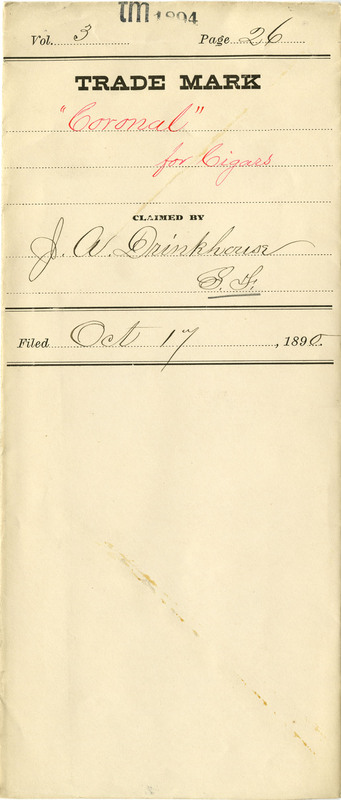 TM 1894
Vol. 3 Page 26
TRADE MARK
"Coronal"
for Cigars
CLAIMED BY
J. A. Drinkhouse
S. F.
Filed Oct 17, 1890.